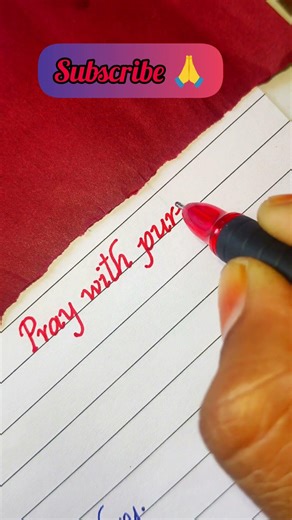 Subscribe 🙏
Pray with pur